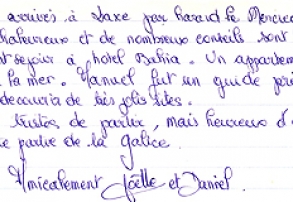 arrivés à Laxe par hasard le Mercure
chaleureux et de nombreux conseils sont
séjour à hotel Bahia. Un appartem
la mer. Manuel fut un guide pré
decouvrir de très jolis sites.
tristes de partir, mais heureux d'
partie de la Galice.
Amicalement Joëlle et Daniel.